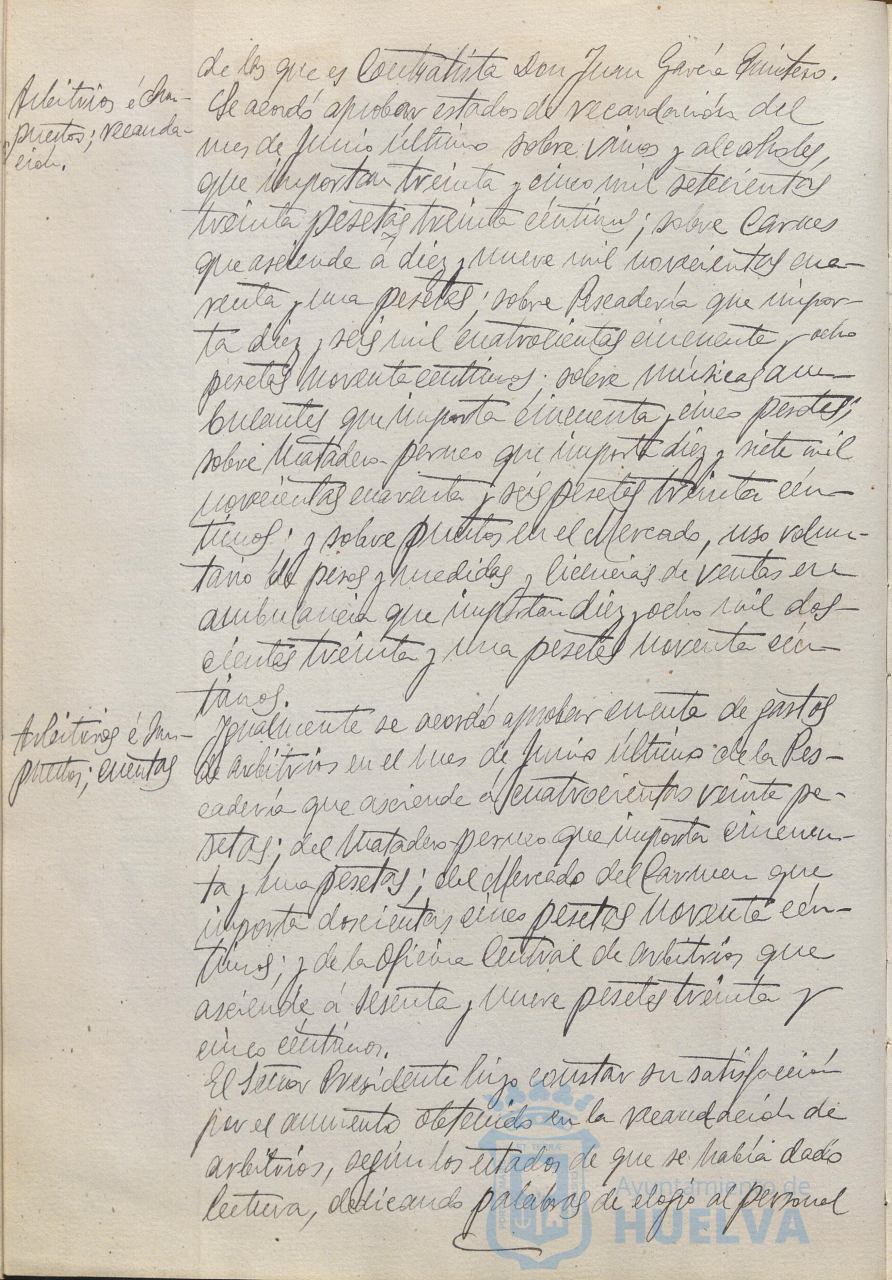 de las que es Contratista Don Juan García Quintero.
Arbitrios é Im-
puestos; recauda-
ción.
Se acordó aprobar estados de recaudación del
mes de Junio último sobre vinos y alcoholes,
que importan treinta y cinco mil setecientas
treinta pesetas treinta céntimos; sobre Carnes
que asciende á diez y nueve mil novecientas cua-
renta y una pesetas; sobre Pescadería que impor-
ta diez y seis mil cuatrocientas cincuenta y ocho
pesetas noventa céntimos; sobre músicas am-
bulantes que importa cincuenta y cinco pesetas;
sobre Matadero porcuno que importa diez y siete mil
novecientas cuarenta y seis pesetas treinta cén-
timos; y sobre puestos en el Mercado, uso volun-
tario de pesos y medidas y licencias de ventas en
ambulancia que importan diez y ocho mil dos-
cientas treinta y una pesetas noventa cén-
timos.
Arbitrios é Im-
puestos; cuentas
Igualmente se acordó aprobar cuenta de gastos
de arbitrios en el mes de Junio último de la Pes-
cadería que asciende á cuatrocientas veinte pe-
setas; del Matadero porcuno que importa cincuen-
ta y una pesetas; del Mercado del Carmen que
importa doscientas cinco pesetas noventa cén-
timos; y de la Oficina Central de arbitrios que
asciende á sesenta y nueve pesetas treinta y
cinco céntimos.
El Señor Presidente hizo constar su satisfacción
por el aumento obtenido en la recaudación de
arbitrios, según los estados de que se había dado
lectura, dedicando palabras de elogio al personal
Ayuntamiento de
HUELVA